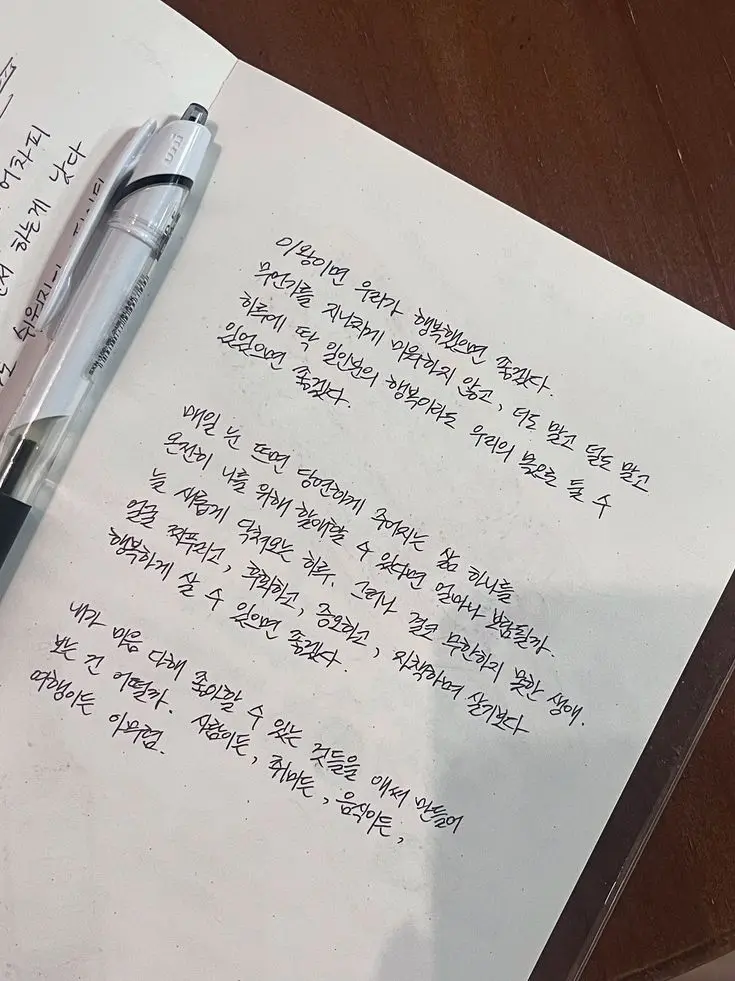 어차피
하는게 낫다
쉬워지
uni
이왕이면 우리가 행복했으면 좋겠다.
무언가를 지나치게 미워하지 않고, 더도 말고 덜도 말고
하루에 딱 일인분의 행복이라도 우리의 몫으로 둘 수
있었으면 좋겠다.
매일 눈 뜨면 당연하게 주어지는 삶 하나를
온전히 나를 위해 할애할 수 있다면 얼마나 보람될까.
늘 새롭게 닥쳐오는 하루. 그러나 결코 무한하지 못한 생애.
얼굴 찌푸리고, 후회하고, 증오하고, 자책하며 살기보다
행복하게 살 수 있으면 좋겠다.
내가 마음 다해 좋아할 수 있는 것들을 애써 만들어
보는 건 어떨까. 사람이든, 취미든, 음식이든,
여행이든 아무렴.